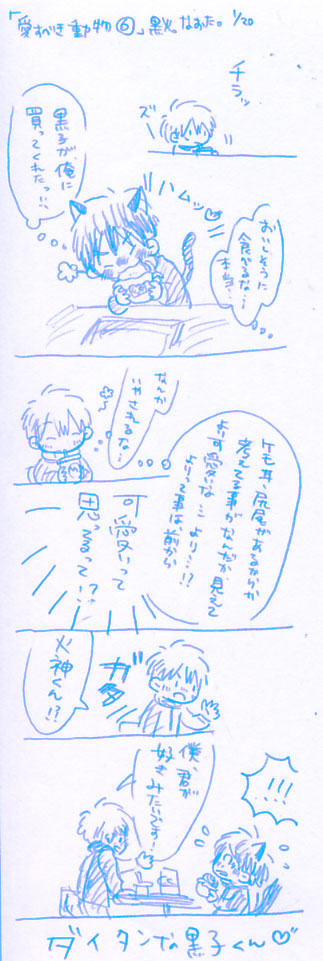 「愛すべき動物⑥」黒火なおた。1/20
チラッ
ズー
黒子が俺に
買ってくれたっ!!
ハムッ♡
おいしそうに
食べるな…
本当…
なんか
いやされるな…
ケモ耳、尻尾があるからか
考えてる事がなんだか見えて
より可愛いな…より…!?
よりって事は前から
可愛いって
思ってるって!?
ガタッ
火神くん!?
!!!
僕、君が
好きみたいです!
ダイタンな黒子くん♡